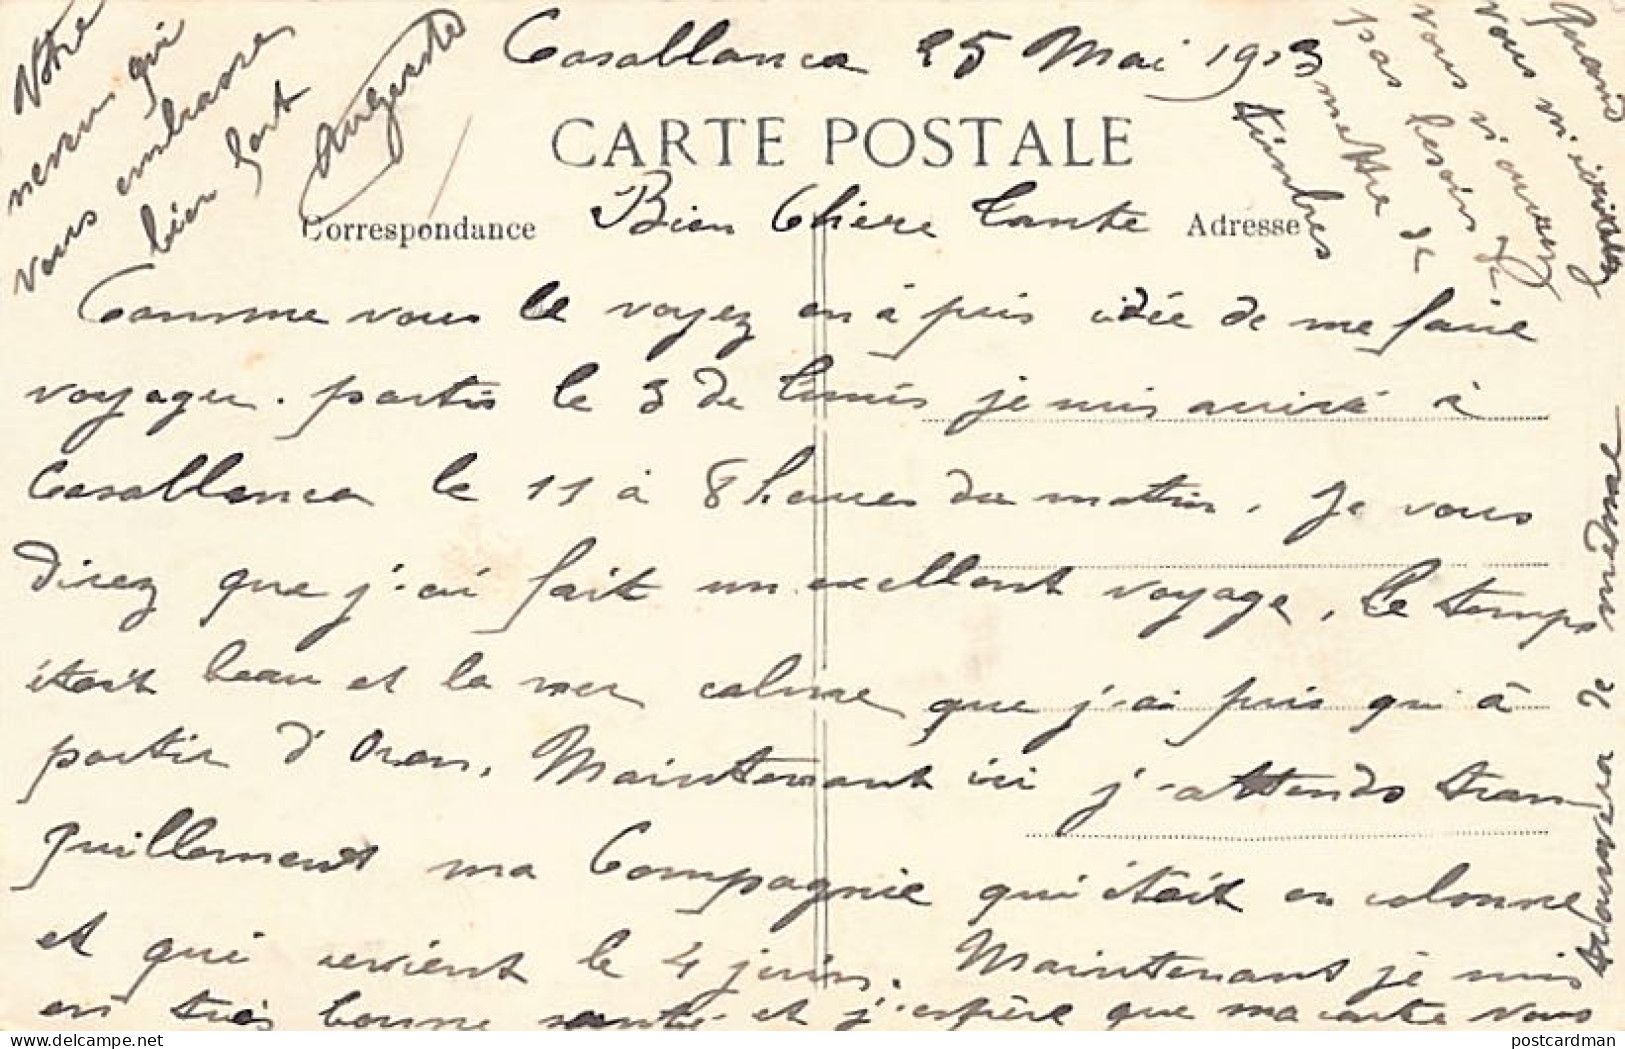 Casablanca 25 Mai 1913
CARTE POSTALE
Correspondance
Adresse
Bien Chère Tante
Comme vous le voyez on à pris idée de me faire
voyager. partis le 3 de Tunis je suis arrivé à
Casablanca le 11 à 8 heures du matin. Je vous
direz que j'ai fait un excellent voyage, le temps
était beau et la mer calme que j'ai pris qui à
partir d'Oran. Maintenant ici j'attends tran
quillement ma Compagnie qui était en colonne
et qui revient le 4 juin. Maintenant je suis
en très bonne santé et j'espère que ma carte vous
trouvera de même
Votre
neveu qui
vous embrasse
bien fort
Auguste
Quand
vous m'écrivez
vous n'avez
pas besoin de
mettre de
timbres
delcampe.net
postcardman